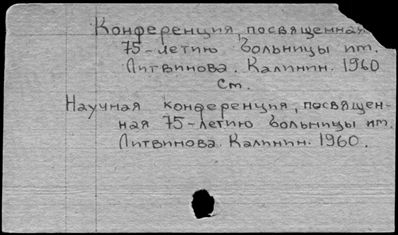 Конференция, посвященная
75-летию больницы им.
Литвинова. Калинин. 1960
см.
Научная конференция, посвящен-
ная 75-летию больницы им.
Литвинова. Калинин. 1960.